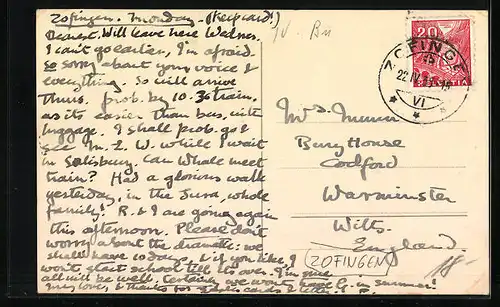 Zofingen. Monday. (Keep card!)
Dearest, Will leave here Wednes.
I can't go earlier, I'm afraid
so sorry about your voice &
everything. So will arrive
Thurs. prob. by 10.30 train,
as it's easier than bus, with
luggage. I shall prob. go &
see M. L. W. while I wait
in Salisbury. Can Whale meet
train? Had a glorious walk
yesterday, in the Jura, whole
family! R. & I are going again
this afternoon. Please don't
worry about the dramatic: we
shall have 10 days, & if you like, I
won't start school till its over. I'm sure
all will be well. Certainly we won't have in summer!
my love, & thanks for cards & letter
IV. Bn
20
HELVETIA
ZOFINGEN
22.IV.35
VI
Mrs. Munn
Bury House
Codford
Warminster
Wilts.
England.
ZOFINGEN